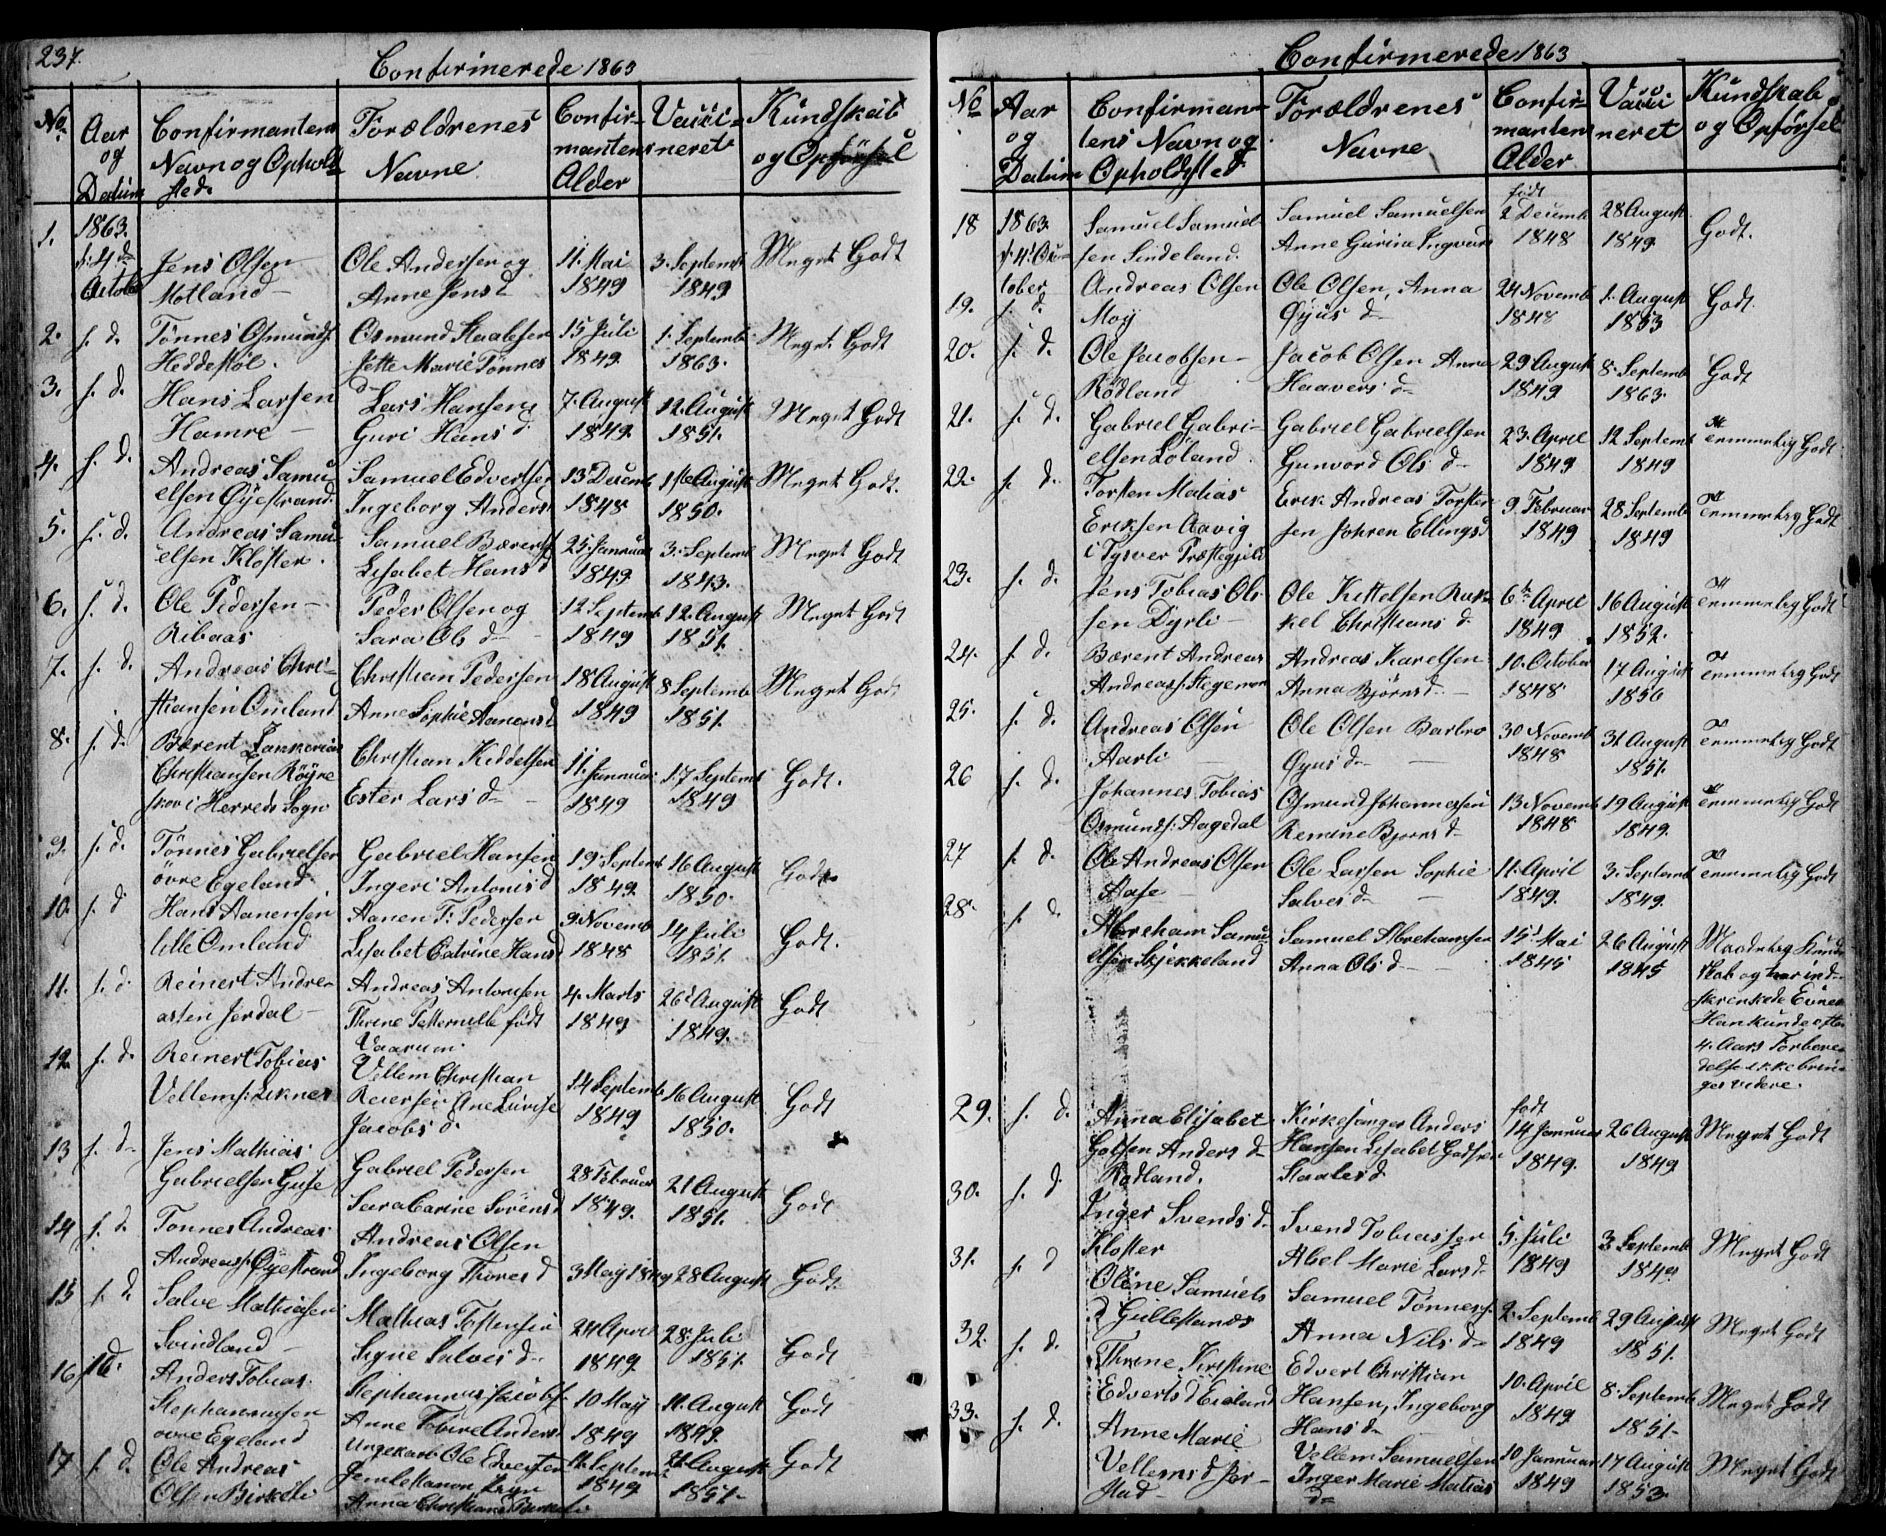 237.
Confirmerede 1863
No.
Aar
og
Datum
Confirmantens
Navn og Ophold
sted
Forældrenes
Navne
Confir-
mantens
Alder
Vacci-
neret
Kundskab
og Opførsel
1.
1863.
d. 4de
October
Jens Olsen
Motland
Ole Andersen og
Anne Jens d
11. Mai
1849
3. Septemb
1849
Meget Godt
2.
s. d.
Tønnes Osmunds.
Heddestøl.
Osmund Staalesen
Jette Marie Tønnes
d
15 Juli
1849
1. Septemb
1863.
Meget Godt
3.
s. d.
Hans Larsen
Hamre
Lars Hansen
Guri Hans d
7. August
1849
12. August
1851.
Meget Godt
4.
s. d.
Andreas Samu-
elsen Øyestrand
Samuel Edvertsen
Ingeborg Anders d
13 Decemb
1848
1ste August
1850.
Meget Godt.
5.
s. d.
Andreas Samu
elsen Kloster.
Samuel Bærents
Lisabet Hans d
25. Januar
1849
3. Septemb
1843.
Meget Godt
6.
s. d.
Ole Pedersen
Ribaas
Peder Olsen og
Sara Ols d
12. Septemb
1849
12. August
1851.
Meget Godt
7.
s. d.
Andreas Chri-
stiansen Omland
Christian Pedersen
Anne Sophie Aanens d
18 August
1849
8 Septemb
1851.
Meget Godt
8.
s. d.
Bærent Zankarias
Christiansen Røyne
skov i Herreds Sogn
Christian Kiddelsen
Ester Lars d
11. Januar
1849
17. Septemb
1849
Godt.
9.
s. d.
Tønnes Gabrielsen
øvre Egeland
Gabriel Hansen
Ingeri Antonis d
19. Septemb
1849
16 August
1850.
Godt
10.
s. d
Hans Aanensen
lille Omland
Aanen T. Pedersen
Lisabet Catrine Hans d
9. Novemb
1848
14 Juli
1851.
Godt.
11.
s. d.
Reinert Andre-
asen Jerdal
Andreas Antonsen
Thrine Petternille født
Vaarum.
4. Marts
1849
26. August
1849.
Godt
12.
s. d.
Reinert Tobias
Vellems. Liknes
Vellem Christian
Reiersen Ane Lovise
Jacobs d.
14 Septemb
1849
16 August
1850.
Godt
13
s. d.
Jens Mathias
Gabrielsen Guse
Gabriel Pedersen
Sara Carine Sørens d
28 Februar
1849.
21 August
1851.
Godt
14
s. d.
Tønnes Andreas
Andreass. Øyestrand
Andreas Olsen
Ingeborg Thores d
3 May 1849
28 August
Godt
15
s. d
Salve Mathiasen
Svindland
Mathias Tostensen
Signe Salves d
24 April
1849
28. Juli
1851.
Godt
16
s. d.
Anders Tobias
Stephanusen
øvre Egeland
Stephanus Jacobs.
Anne Tobine Anders
10 May
1849
11. August
1849.
Godt
17
s. d.
Ole Andreas
Olsen Birkeli
Ungekarl Ole Edvertsen
Anna Christians
Septemb
1849
21 August
1851.
Godt
Confirmerede 1863
No
Aar
og
Datum
Confirman-
tens Navn og
Opholdsted
Forældrenes
Navne
Confir-
mantens
Alder
Vacci
neret
Kundskab
og Opførsel
18
1863.
d. 4. Oc-
tober
Samuel Samuel
sen Sindeland.
Samuel Samuelsen
Anne Gurine Ingvars
født
2 Decemb
1848
28 August
1849
Godt.
19.
s. d.
Andreas Olsen
Moy
Ole Olsen, Anna
Øyus d
24 Novemb
1848
1. August
1853
Godt
20.
s. d.
Ole Jacobsen
Rødland
Jacob Olsen Anna
Haavers d
29 August
1849
8. Septemb
1863.
Godt
21.
s. d.
Gabriel Gabri-
elsen Løland
Gabriel Gabrielsen
Gunvord Ols d
23. April
1849
12 Septemb
1849
Temmelig Godt.
22.
s. d.
Torsten Matias
Eriksen Aavig
i Tysver Præstegjeld
Erik Andreas Torster
sen Johren Ellings d
9. Februar
1849
28 Septemb
1849
Temmelig Godt
23.
s. d.
Jens Tobias Ols
sen Dyrli
Ole Kittelsen Rak-
kel Christians d
6te April
1849
16 August
1852.
Temmelig Godt
24.
s. d.
Bærent Andreas
Andreass. Stegemoen
Andreas Karelsen
Anna Bjørns d.
10. October
1848
17 August
1850
Temmelig Godt
25.
s. d.
Andreas Olsen
Aarli
Ole Olsen Barbro
Gyus d
30 Novemb
1848
31 August
1851.
Temmelig Godt
26
s. d.
Johannes Tobias
Osmunds. Aagedal
Osmund Johannessen
Remine Bjørns d
13 Novemb
1848
19 August
1849.
Temmelig Godt
27
s. d.
Ole Andreas Olsen
Aase
Ole Larsen Sophie
Salves d
11. April
1849.
3. Septemb
1849.
Temmelig Godt
28.
s. d.
Abreham Samu-
elsen Skjekkeland
Samuel Abrehamsen
Anna Ols d
15. Mai
1845
26 August
1845
Maadelig Kund-
skab og har ind-
skrenkede Evner
Han kunde efter
4. Aars Forbere-
delse ikke brin-
ges videre.
29.
s. d.
Anna Elisabet
Gotsen Anders d
Rødland.
Kirkesanger Anders
Hansen Lisabet Godsen
Staales d
født
14 Januar
1849.
26 August
1849
Meget Godt
30.
s. d
Inger Svends d
Kloster
Svend Tobiassen
Abel Marie Lars d
5. Juli
1849
3 Septemb
1849
Meget Godt
31.
s. d
Oline Samuels
d Gullestands
Samuel Tønness.
Anna Nils d
2. Septemb
1849
29 August
1851.
Meget Godt
32.
s. d.
Thrine Kirstine
Edverts d Eieland
Edvert Christian
Hansen, Ingeborg
Hans d
10. April
1849
8. Septemb
1851.
Meget Godt
33.
s. d.
Anne Marie
Vellems d Jer-
stad
Vellem Samuelsen
Inger Marie Matias
d
10 Januar
1849
17 August
1853
Meget Godt